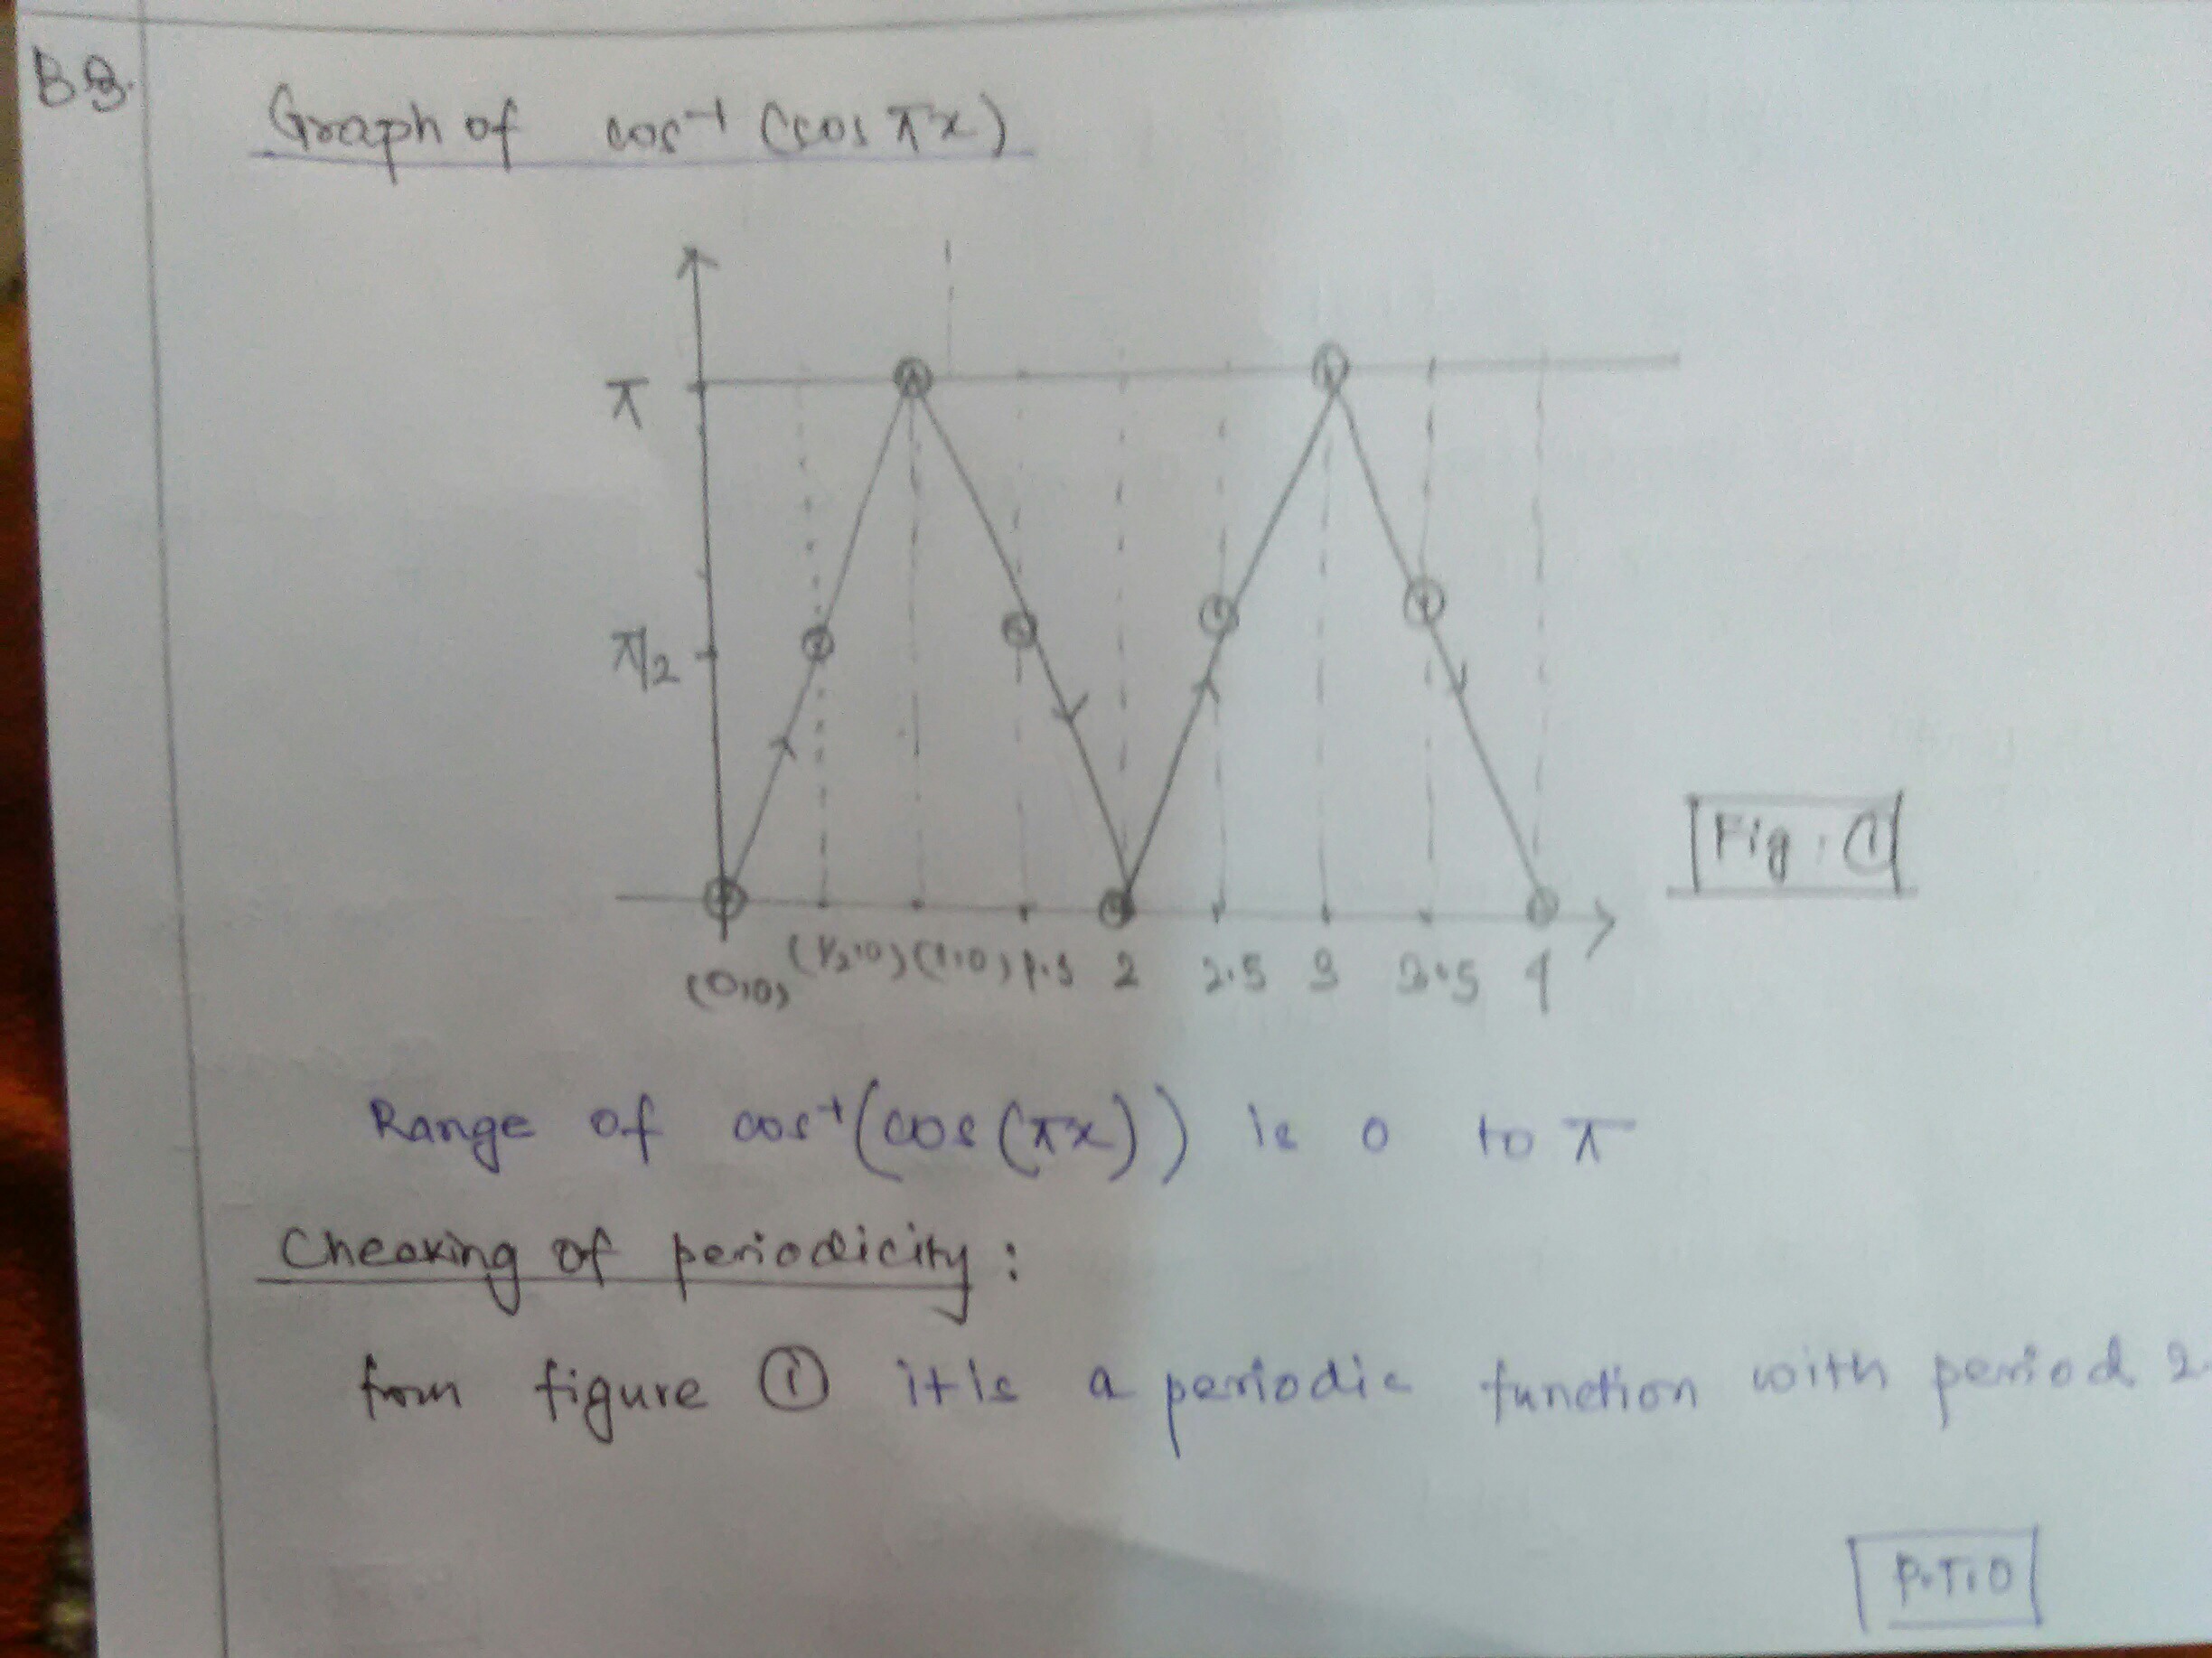 B3.
Graph of cos⁻¹ (cos πx)
π
π/2
Fig : ①
(0,0) (1/2,0) (1,0) 1.5 2 2.5 3 3.5 4
Range of cos⁻¹(cos (πx)) is 0 to π
Checking of periodicity :
from figure ① it is a periodic function with period 2
P.T.O